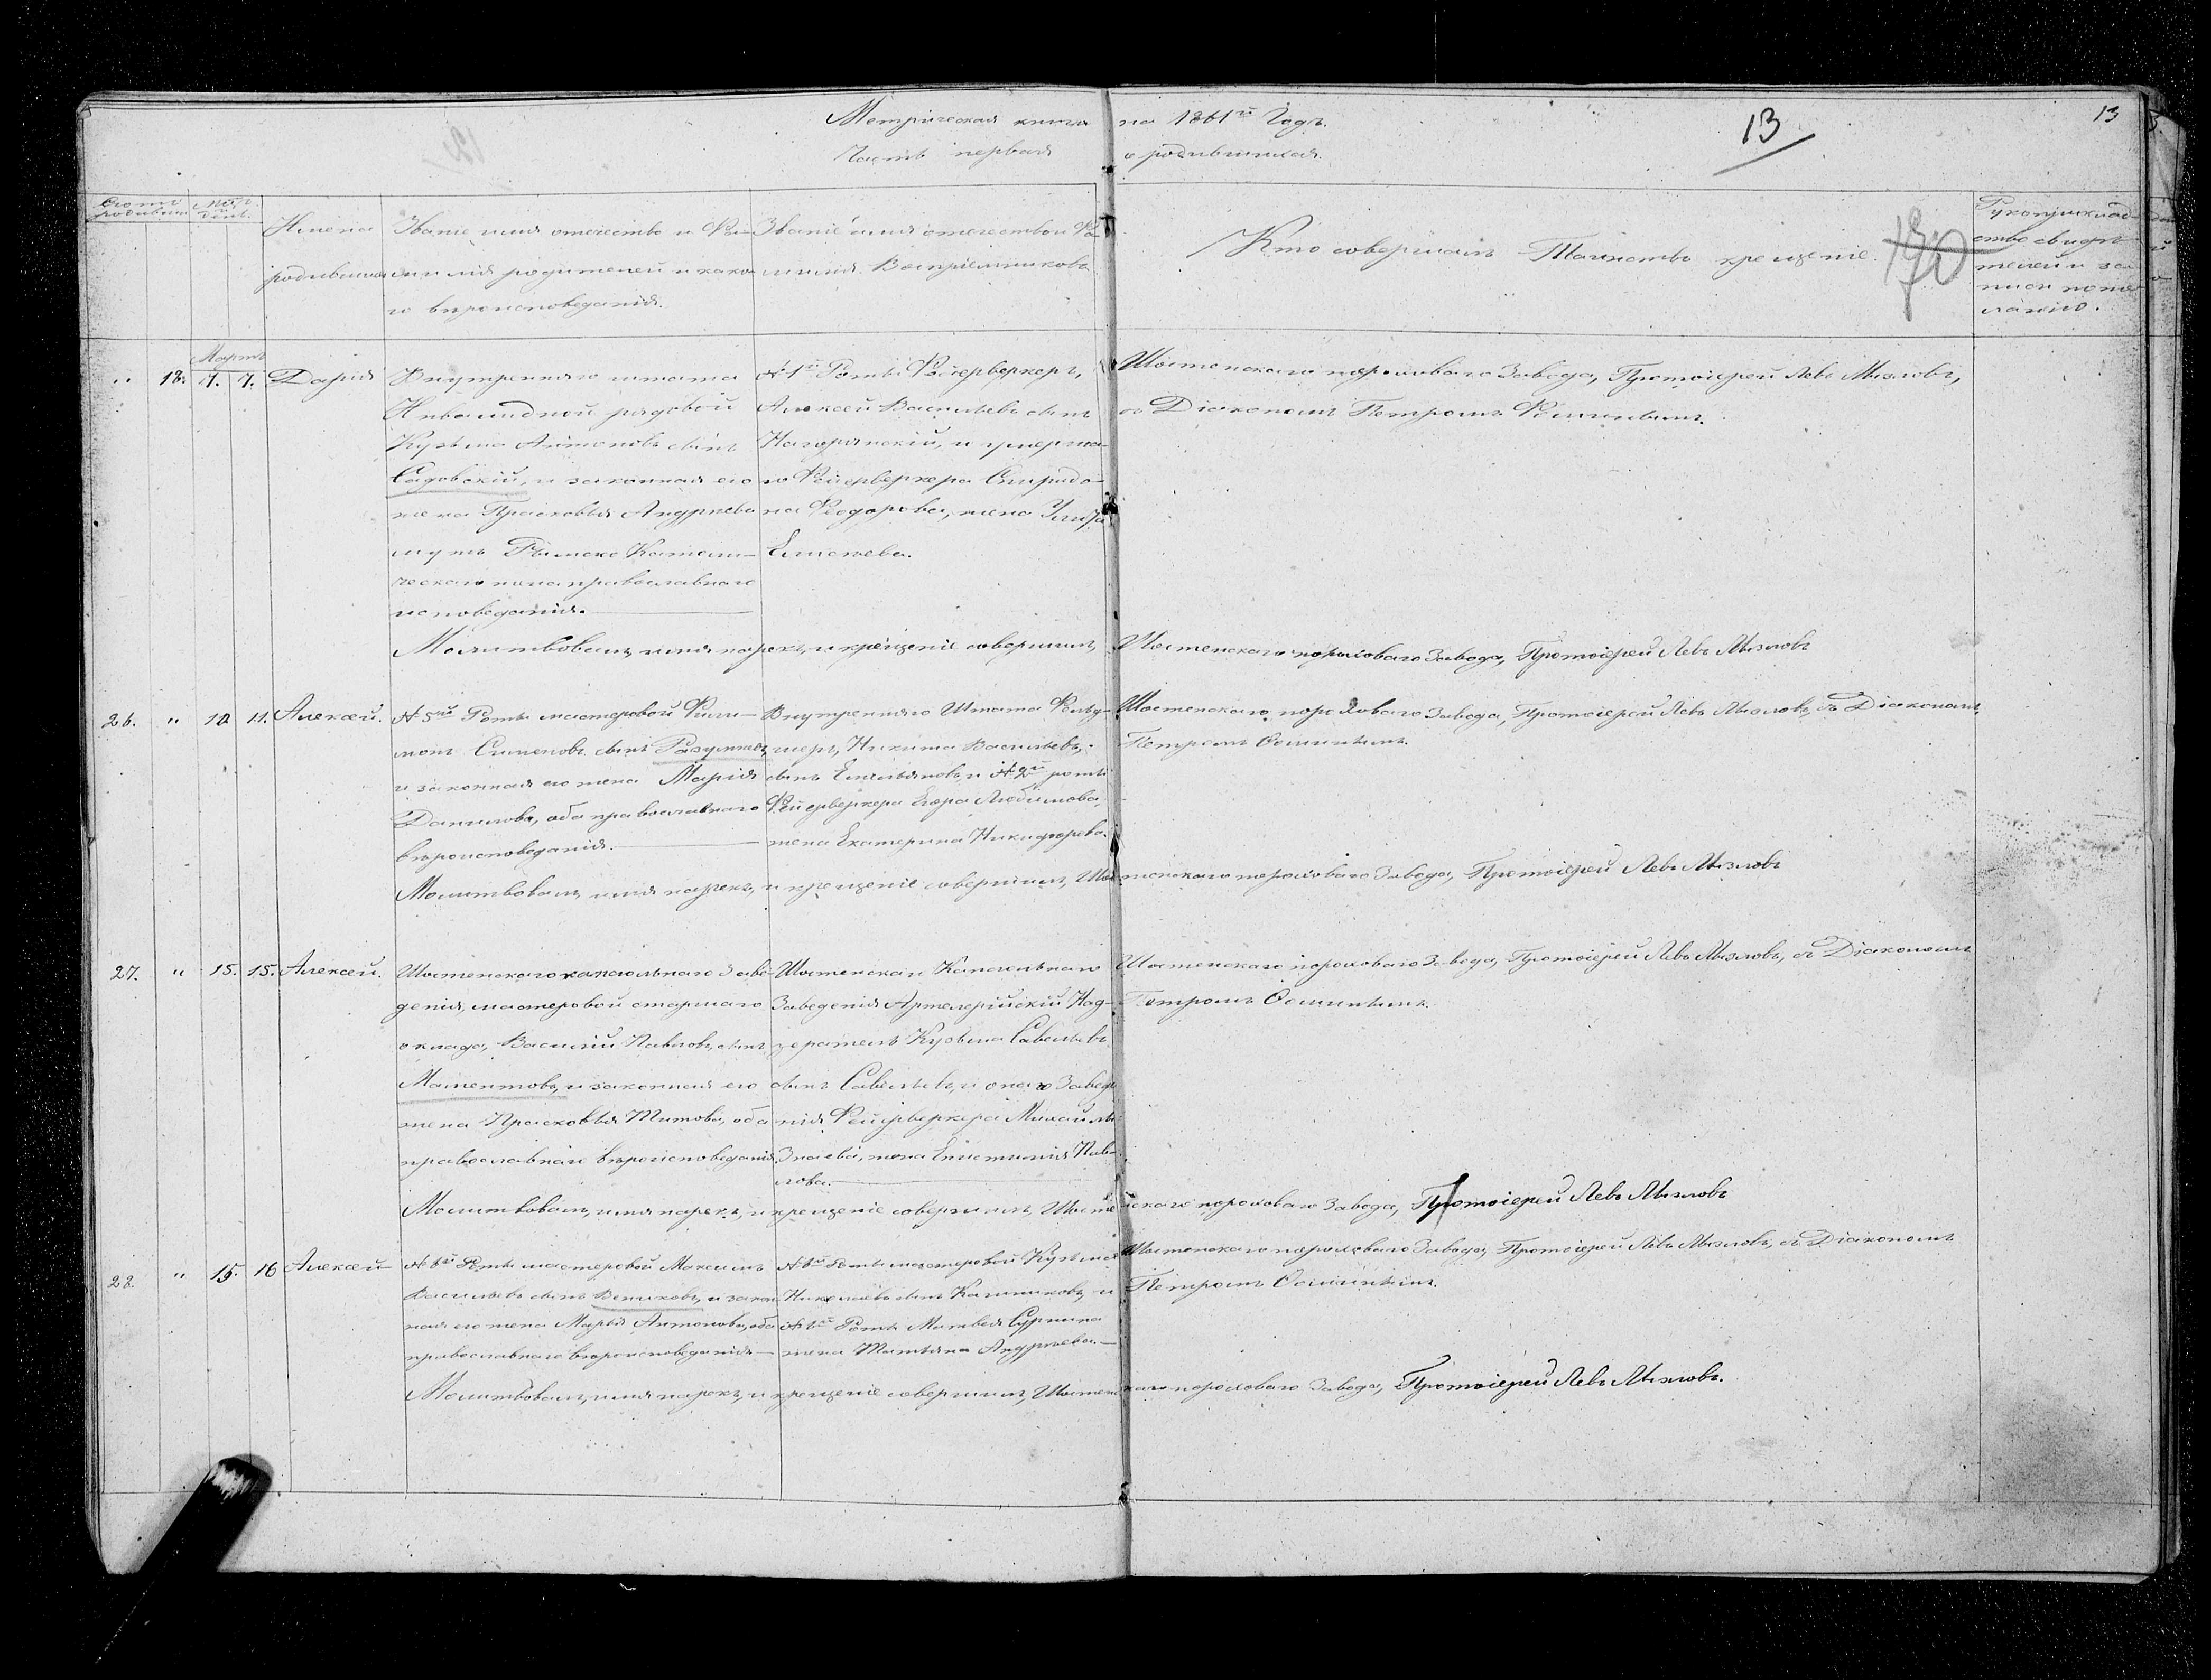 Метрическая книга на 1861й Годъ.
13
13
Часть первая о родившихся.
Счетъ родивших
Мѣс. день.
Имена родившихся
Званіе имя отечество и Фамилія родителей и како го вѣроисповеданія.
Званіе имя отечество и Фамилія Воспріемниковъ
Кто совершалъ Таинство крещеніе.
Рукоприкладство свидѣтелей и записи по желанію.
Мартъ
" 18. 7. 7. Дарія
Внутренняго штата
Инвалидной рядовой
Кузьма Антоновъ сынъ
Садовскій, и законная его
жена Прасковья Андреева
мужъ Римско Католи-
ческаго жена православнаго
исповеданія.
№ 1й Роты Фейерверкеръ,
Алексей Васильевъ сынъ
Нагорянскій, и умерша-
го Фейерверкера Спиридо-
на Феодорова, жена
Шостенскаго пороховаго Завода, Протоіерей Левъ Мизловъ,
съ Діакономъ Петромъ
Молитвовалъ, имя нарекъ, и крещеніе совершилъ, Шостенскаго пороховаго Завода, Протоіерей Левъ Мизловъ
26. " 10. 11. Алексей.
№ 5й Роты мастеровой Фили-
монъ Сименовъ сынъ
и законная его жена Марія
Данилова, оба православнаго
вѣроисповеданія.
Внутренняго Штата Фельд-
шеръ, Никита Васильевъ,
сынъ Емельяновъ, и № 2й роты
Фейерверкера Егора Любимова,
жена Екатерина Никифорова.
Шостенскаго пороховаго Завода, Протоіерей Левъ Мизловъ, съ Діакономъ
Петромъ
Молитвовалъ, имя нарекъ, и крещеніе совершилъ, Шостенскаго пороховаго Завода, Протоіерей Левъ Мизловъ
27. " 15. 15. Алексей.
Шостенскаго капсюльнаго Заве-
денія, мастеровой старшаго
оклада, Василій Павловъ, сынъ
Маментовъ, и законная его
жена Прасковья Титова, оба
православнаго вѣроисповеданія.
Шостенскаго Капсюльнаго
Заведенія Артелерійскій Над-
зератель Кузьма Савельевъ
сынъ Савельевъ, и онаго Заведе
нія Фейерверкера Михаила
жена Павлова.
Шостенскаго пороховаго Завода, Протоіерей Левъ Мизловъ, съ Діакономъ
Петромъ
Молитвовалъ, имя нарекъ, и крещеніе совершилъ, Шостенскаго пороховаго Завода, Протоіерей Левъ Мизловъ
28. " 15. 16 Алексей
№ 6й Роты мастеровой Максимъ
Васильевъ сынъ Вениковъ, и закон
ная его жена Марья Антонова, оба
православнаго вѣроисповеданія
№ 6й Роты мастеровой Кузьма
Николаевъ сынъ и
№ 1й Роты Матвея
жена Татьяна Андреева.
Шостенскаго пороховаго Завода, Протоіерей Левъ Мизловъ, съ Діакономъ
Петромъ
Молитвовалъ, имя нарекъ, и крещеніе совершилъ, Шостенскаго пороховаго Завода, Протоіерей Левъ Мизловъ.